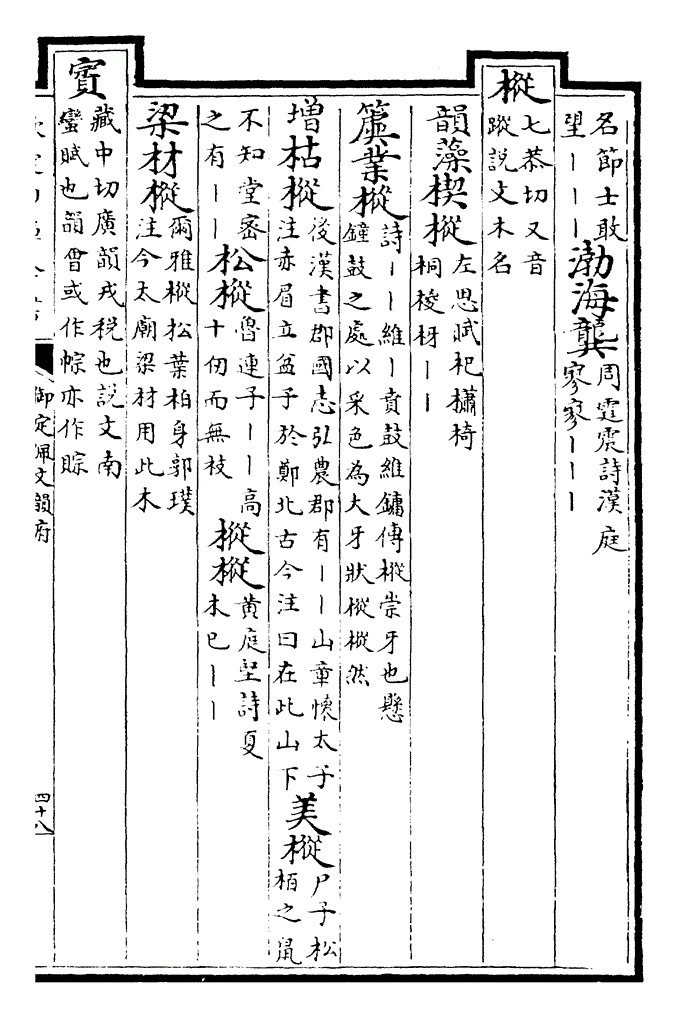 名節士敢望｜｜｜渤海龔周霆震詩漢庭寥寥｜｜｜
樅七恭切又音蹤說文木名
韻藻楔樅左思賦杞櫹椅桐椶枒｜｜
簴業樅詩｜｜維｜賁鼓維鏞傳樅崇牙也懸鐘鼓之處以采色為大牙狀樅樅然
增枯樅後漢書郡國志弘農郡有｜｜山章懷太子注赤眉立盆子於鄭北古今注曰在此山下美樅尸子松栢之鼠
不知堂密之有｜｜松樅魯連子｜｜高十仞而無枝樅樅黄庭堅詩夏木已｜｜
梁材樅爾雅樅松葉柏身郭璞注今太廟梁材用此木
賨藏中切廣韻戎稅也說文南蠻賦也韻會或作㡓亦作賩
欽定四庫全書
御定佩文韻府
四十八